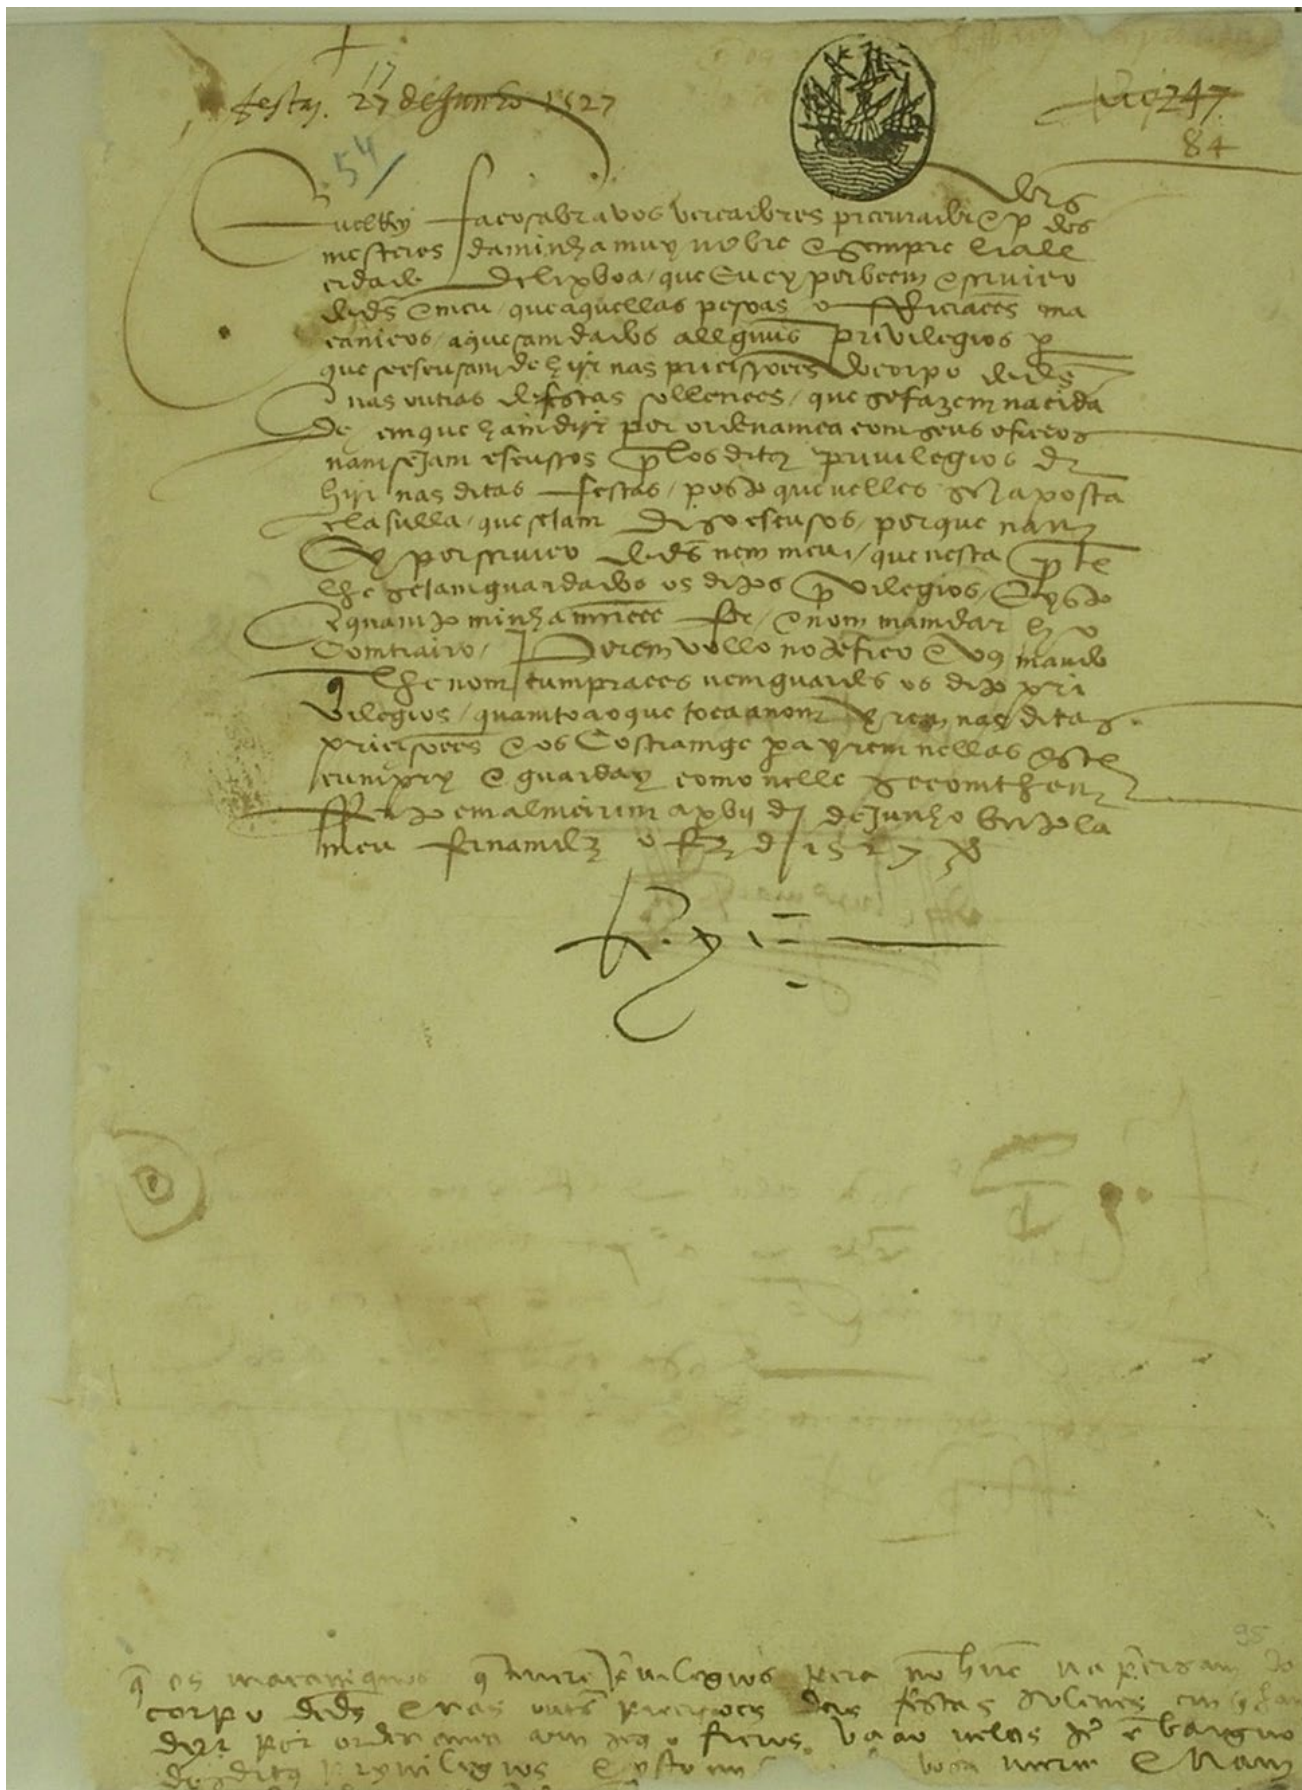 festas. 27 de Junho 1527
17
247
84
54
Eu elRey faço saber a vos vereadores procuradores e p dos
mesteres da minha muy nobre e sempre liall
cidade de lixboa / que Eu ey por beem e serviço
de ds e meu / que aquellas pesoas officiaees ma
canicos / a que sam dados allguus privilegios p
que se escusam de hijr nas precissoees do corpo de ds
nas outras de festas sollenees / que se fazem na cida
de / em que ham dijr por ordenamça com seus oficios
nam sejam escussos plos ditos privilegios de
hijr nas ditas festas / posto que nelles seja posta
clasulla / que sejam diso escusos / porque nam
Ey por serviço de ds nem meu / que nesta pte
lhe sejam guardados os ditos pvilegios / E ysto
em quamto minha merce for / e nom mamdar ho
Comtrairo / Porem vollo notefico e vos mamdo
q lhe nom cumpraees nem guardes os ditos pri
vilegios / quamto ao que toca a nom yrem nas ditas
precisoees e os Costramge pa yrem nellas e este
cumpry e guarday como nelle se comthem
ffeito em almeirim a xbij d de Junho bertola
meu fernamdez o fez d 1527
Rey
q os macaniquos q tiverem pvilegios pera nõ hirẽ na precisam do
corpo de ds e nas outs precisoes das festas solenes em q ham
dir per ordenamça com seus oficios vaão nelas sẽ ẽbarguo
dos ditos privilegios e ysto em boa merce e nam